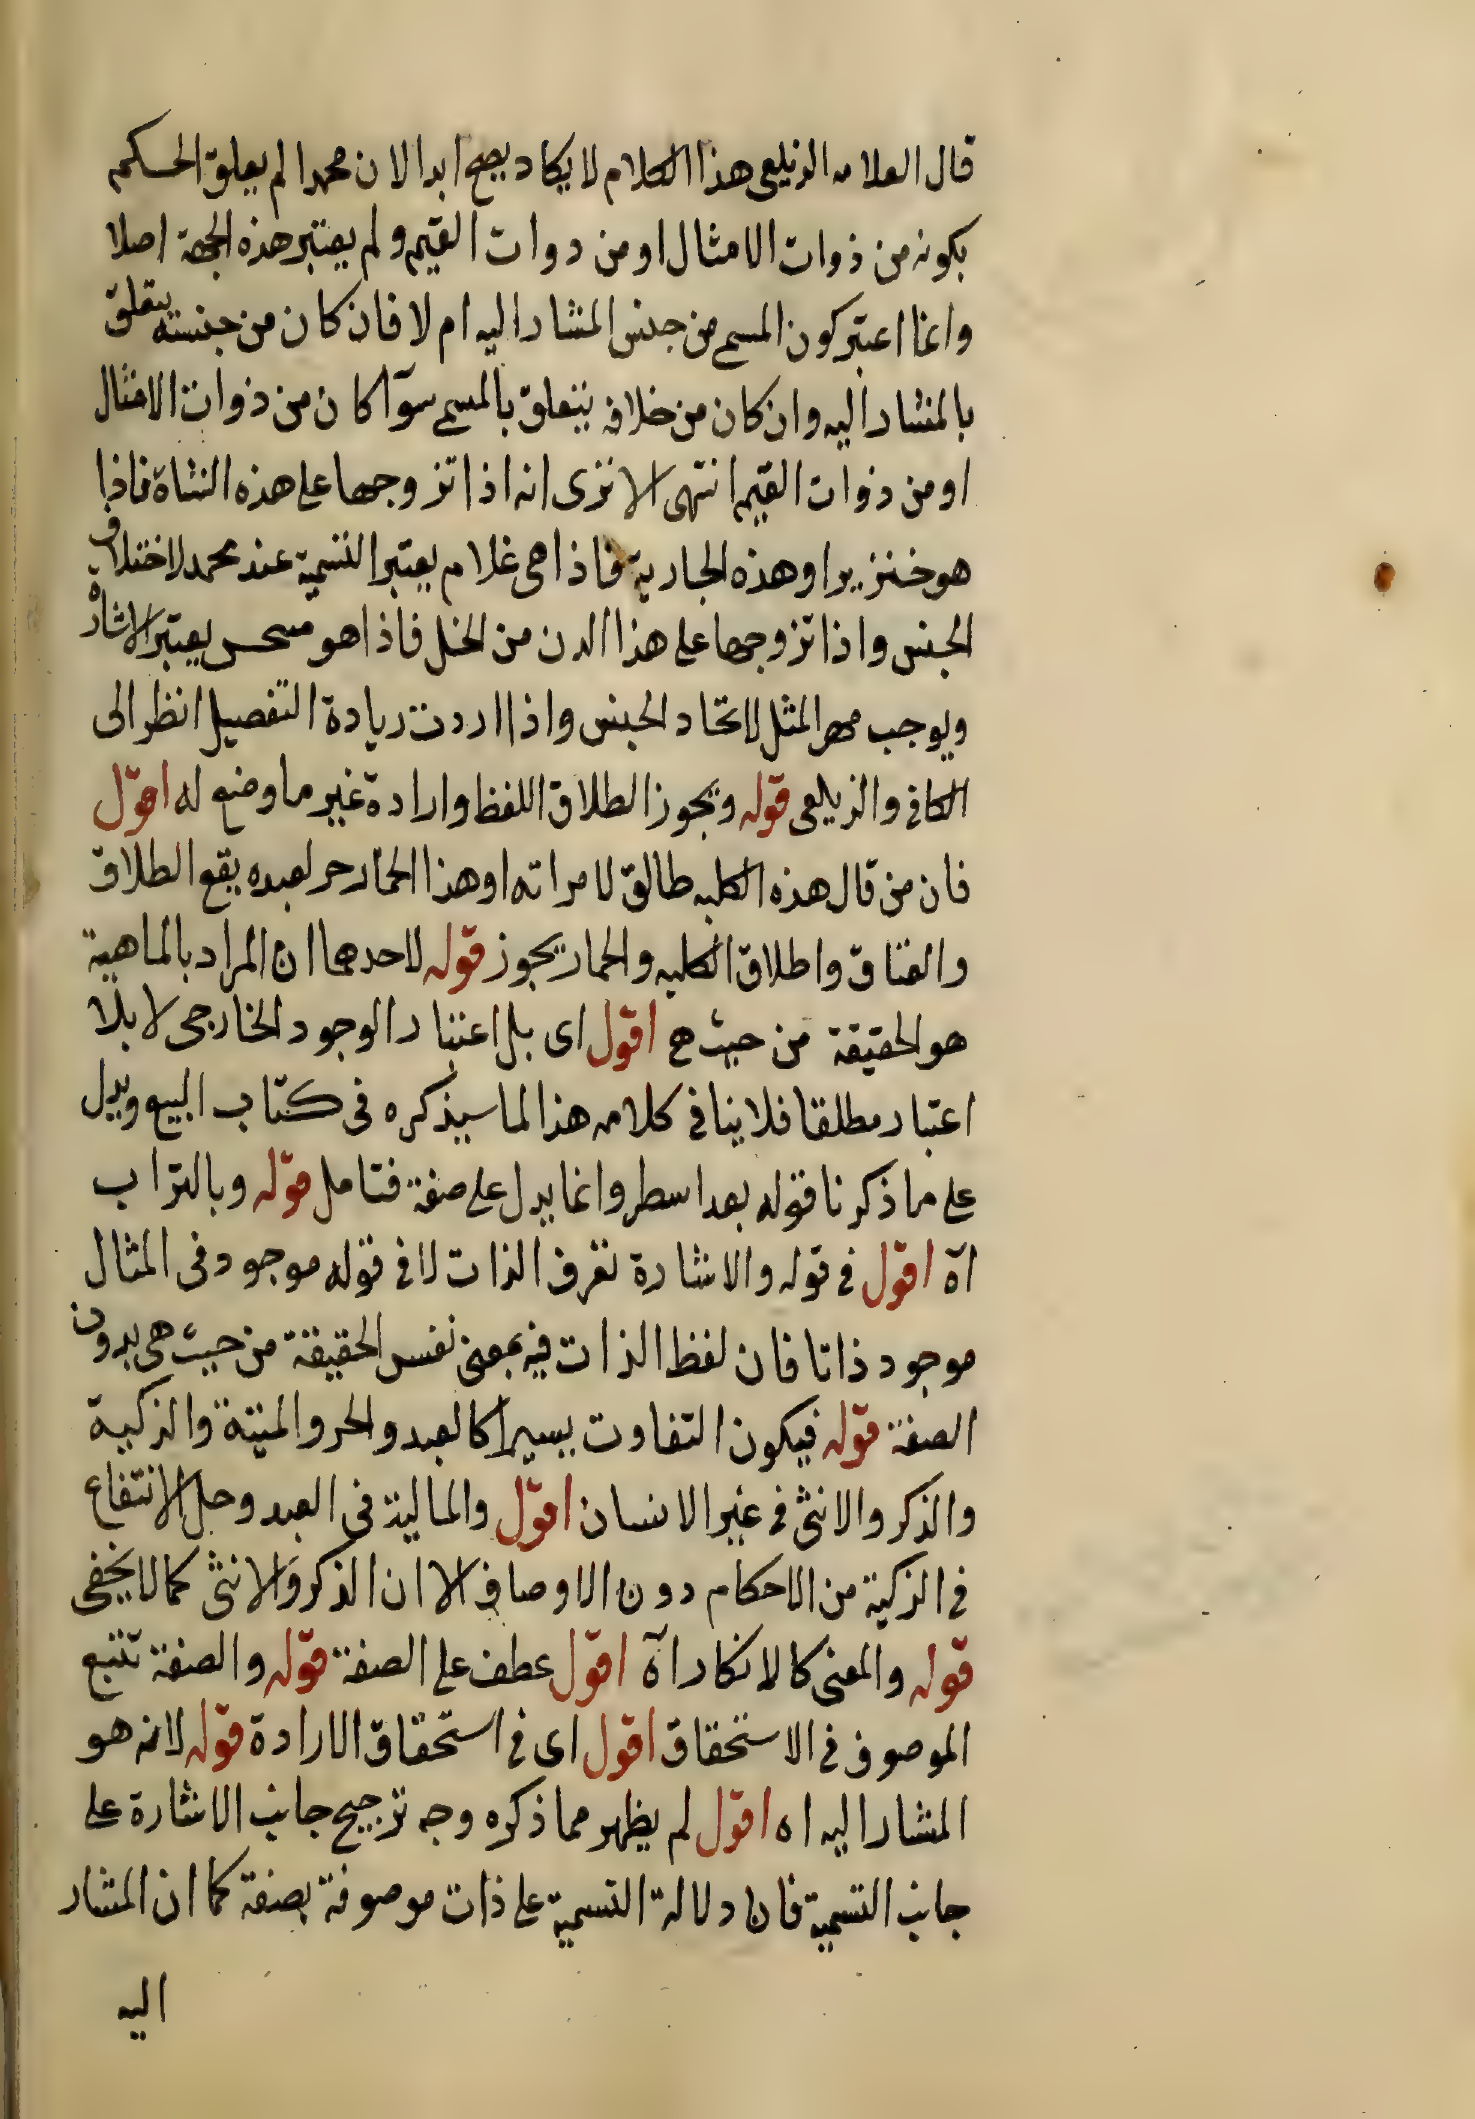 قال العلامه الزيلعى هذا الكلام لا يكاد يصح ابدا لان محمدا لم يعلق الحكم
بكونه من ذوات الامثال او من دوات القيم ولم يعتبر هذه الجهة اصلا
وانما اعتبر كون المسمى من جنس المشار اليه ام لا فان كان من جنسه يتعلق
بالمشار اليه وان كان من خلافه يتعلق بالمسمى سوآ كان من ذوات الامثال
او من ذوات القيم انتهى الا ترى انه اذا تزوجها على هذه الشاة فاذا
هو خنزير او هذه الجارية فاذا هى غلام يعتبر التسمية عند محمد لاختلاف
الجنس واذا تزوجها على هذا الدن من الخل فاذا هو يعتبر الاشارة
ويوجب مهر المثل لاتحاد الجنس واذا اردت زيادة التفصيل انظر الى
الكافى والزيلعى قوله ويجوز اطلاق اللفظ وارادة غير ما وضع له اقول
فان من قال هذه الكلبه طالق لامراته او هذا الحمار حر لعبده يقع الطلاق
والعتاق واطلاق الكلبه والحمار يجوز قوله لاحدهما ان المراد بالماهية
هو الحقيقة من حيث هى اقول اى بل اعتبار الوجود الخارجى لا بلا
اعتبار مطلقا فلا ينافى كلامه هذا لما سيذكره فى كتاب البيع ويدل
على ما ذكرنا قوله بعد اسطر وانما يدل على صفة فتامل قوله وبالتراب
آه اقول فى قوله والاشارة تعرف الذات لا فى قوله موجود فى المثال
موجود ذاتا فان لفظ الذات فيه بمعنى نفس الحقيقة من حيث هى بدون
الصفة قوله فيكون التفاوت يسيرا كالعبد والحر والميتة والزكية
والذكر والانثى فى غير الانسان اقول والمالية فى العبد وحل الانتفاع
فى الزكية من الاحكام دون الاوصاف الا ان الذكر والانثى كما لا يخفى
قوله والمعنى كالانكار آه اقول عطف على الصفة قوله والصفة تتبع
الموصوف فى الاستحقاق اقول اى فى استحقاق الارادة قوله لانه هو
المشار اليه اه اقول لم يظهر مما ذكره وجه ترجيح جانب الاشارة على
جانب التسمية فان دلالة التسمية على ذات موصوفة بصفة كما ان المشار
اليه